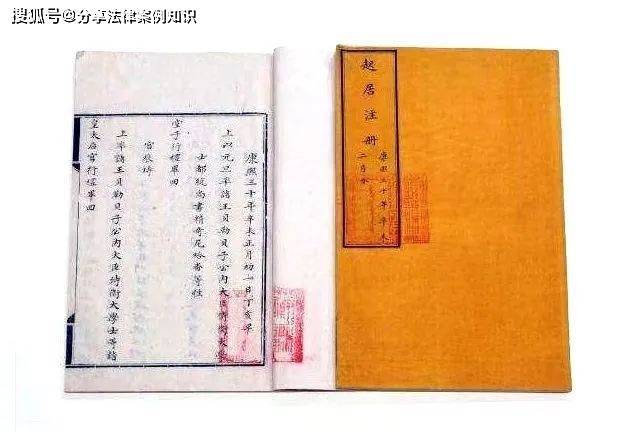 搜狐号@分享法律案例知识
起居注册
康熙三十年辛未
康熙三十年辛未正月初一日丁亥早
上以元旦率諸王貝勒貝子公內大臣侍衛大學
士都統尚書精奇尼哈番等往
堂子行禮畢回
宮
上率諸王貝勒貝子公內大臣侍衛大學士等詣
皇太后宮行禮畢回